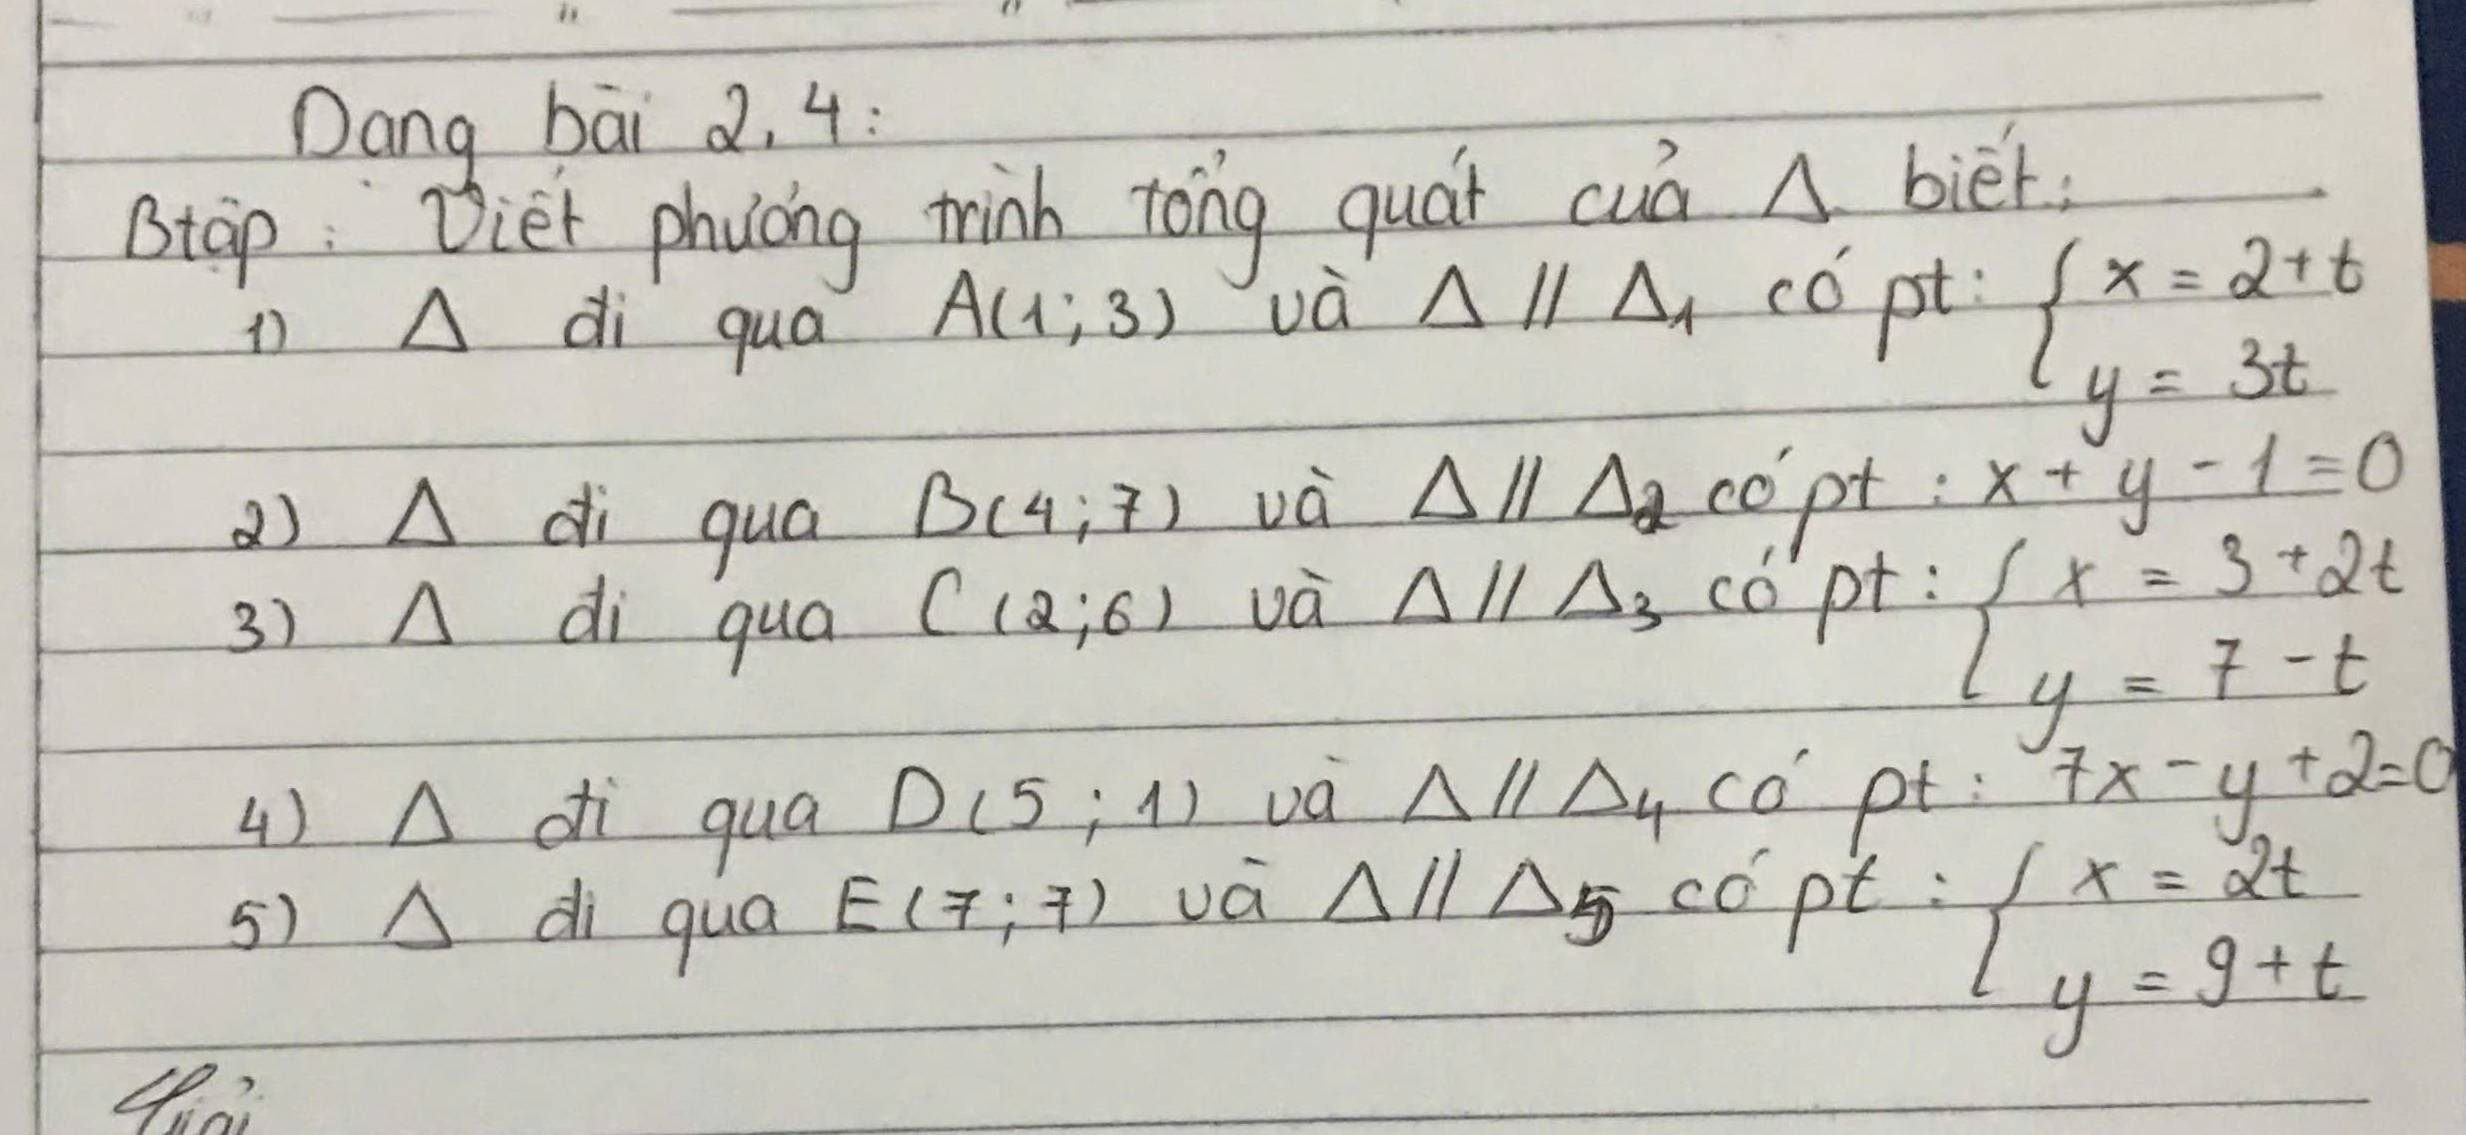 Dạng bài 2, 4:
Btập: Viết phương trình tổng quát của Δ biết:
1) Δ đi qua A(1;3) và Δ // Δ1 có pt: { x = 2+t
y = 3t
2) Δ đi qua B(4;7) và Δ // Δ2 có pt: x + y - 1 = 0
3) Δ đi qua C(2;6) và Δ // Δ3 có pt: { x = 3+2t
y = 7 - t
4) Δ đi qua D(5;1) và Δ // Δ4 có pt: 7x - y + 2 = 0
5) Δ đi qua E(7;7) và Δ // Δ5 có pt: { x = 2t
y = 9+t
Giải